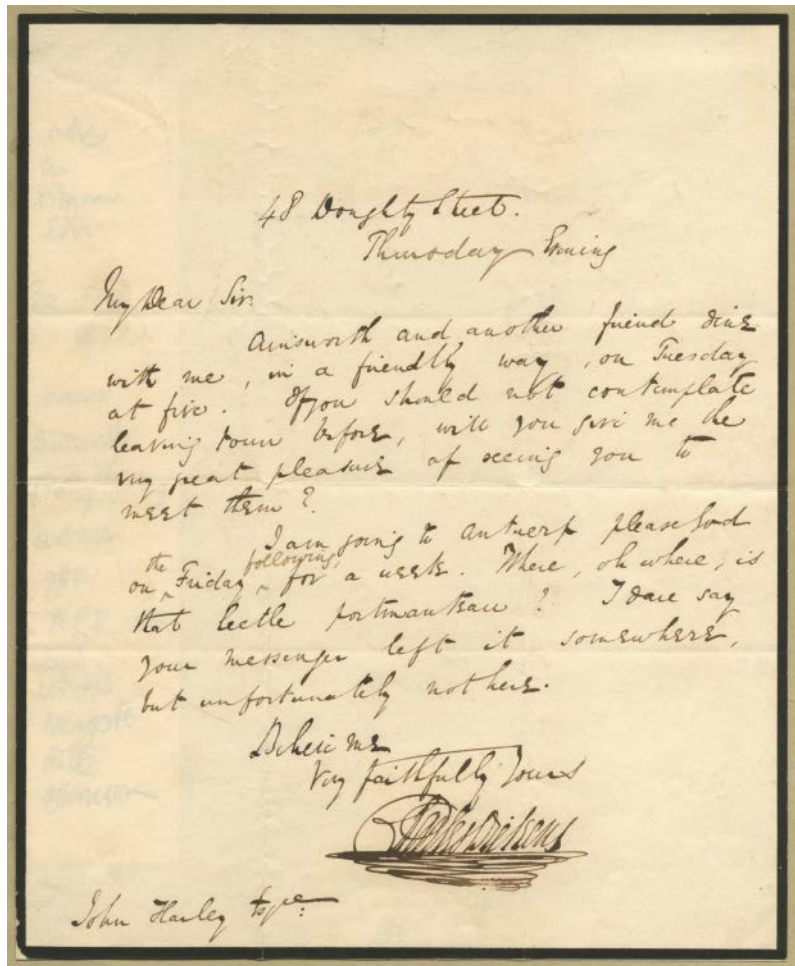 48 Doughty Street.
Thursday Evening
My Dear Sir.
Ainsworth and another friend dine
with me, in a friendly way, on Tuesday
at five. If you should not contemplate
leaving town before, will you give me the
very great pleasure of seeing you to
meet them?
I am going to Antwerp please God
on the Friday following, for a week. Where, oh where, is
that leetle portmanteau? I dare say
your messenger left it somewhere,
but unfortunately not here.
Believe me
Very faithfully Yours
Charles Dickens
John Harley Esqre: